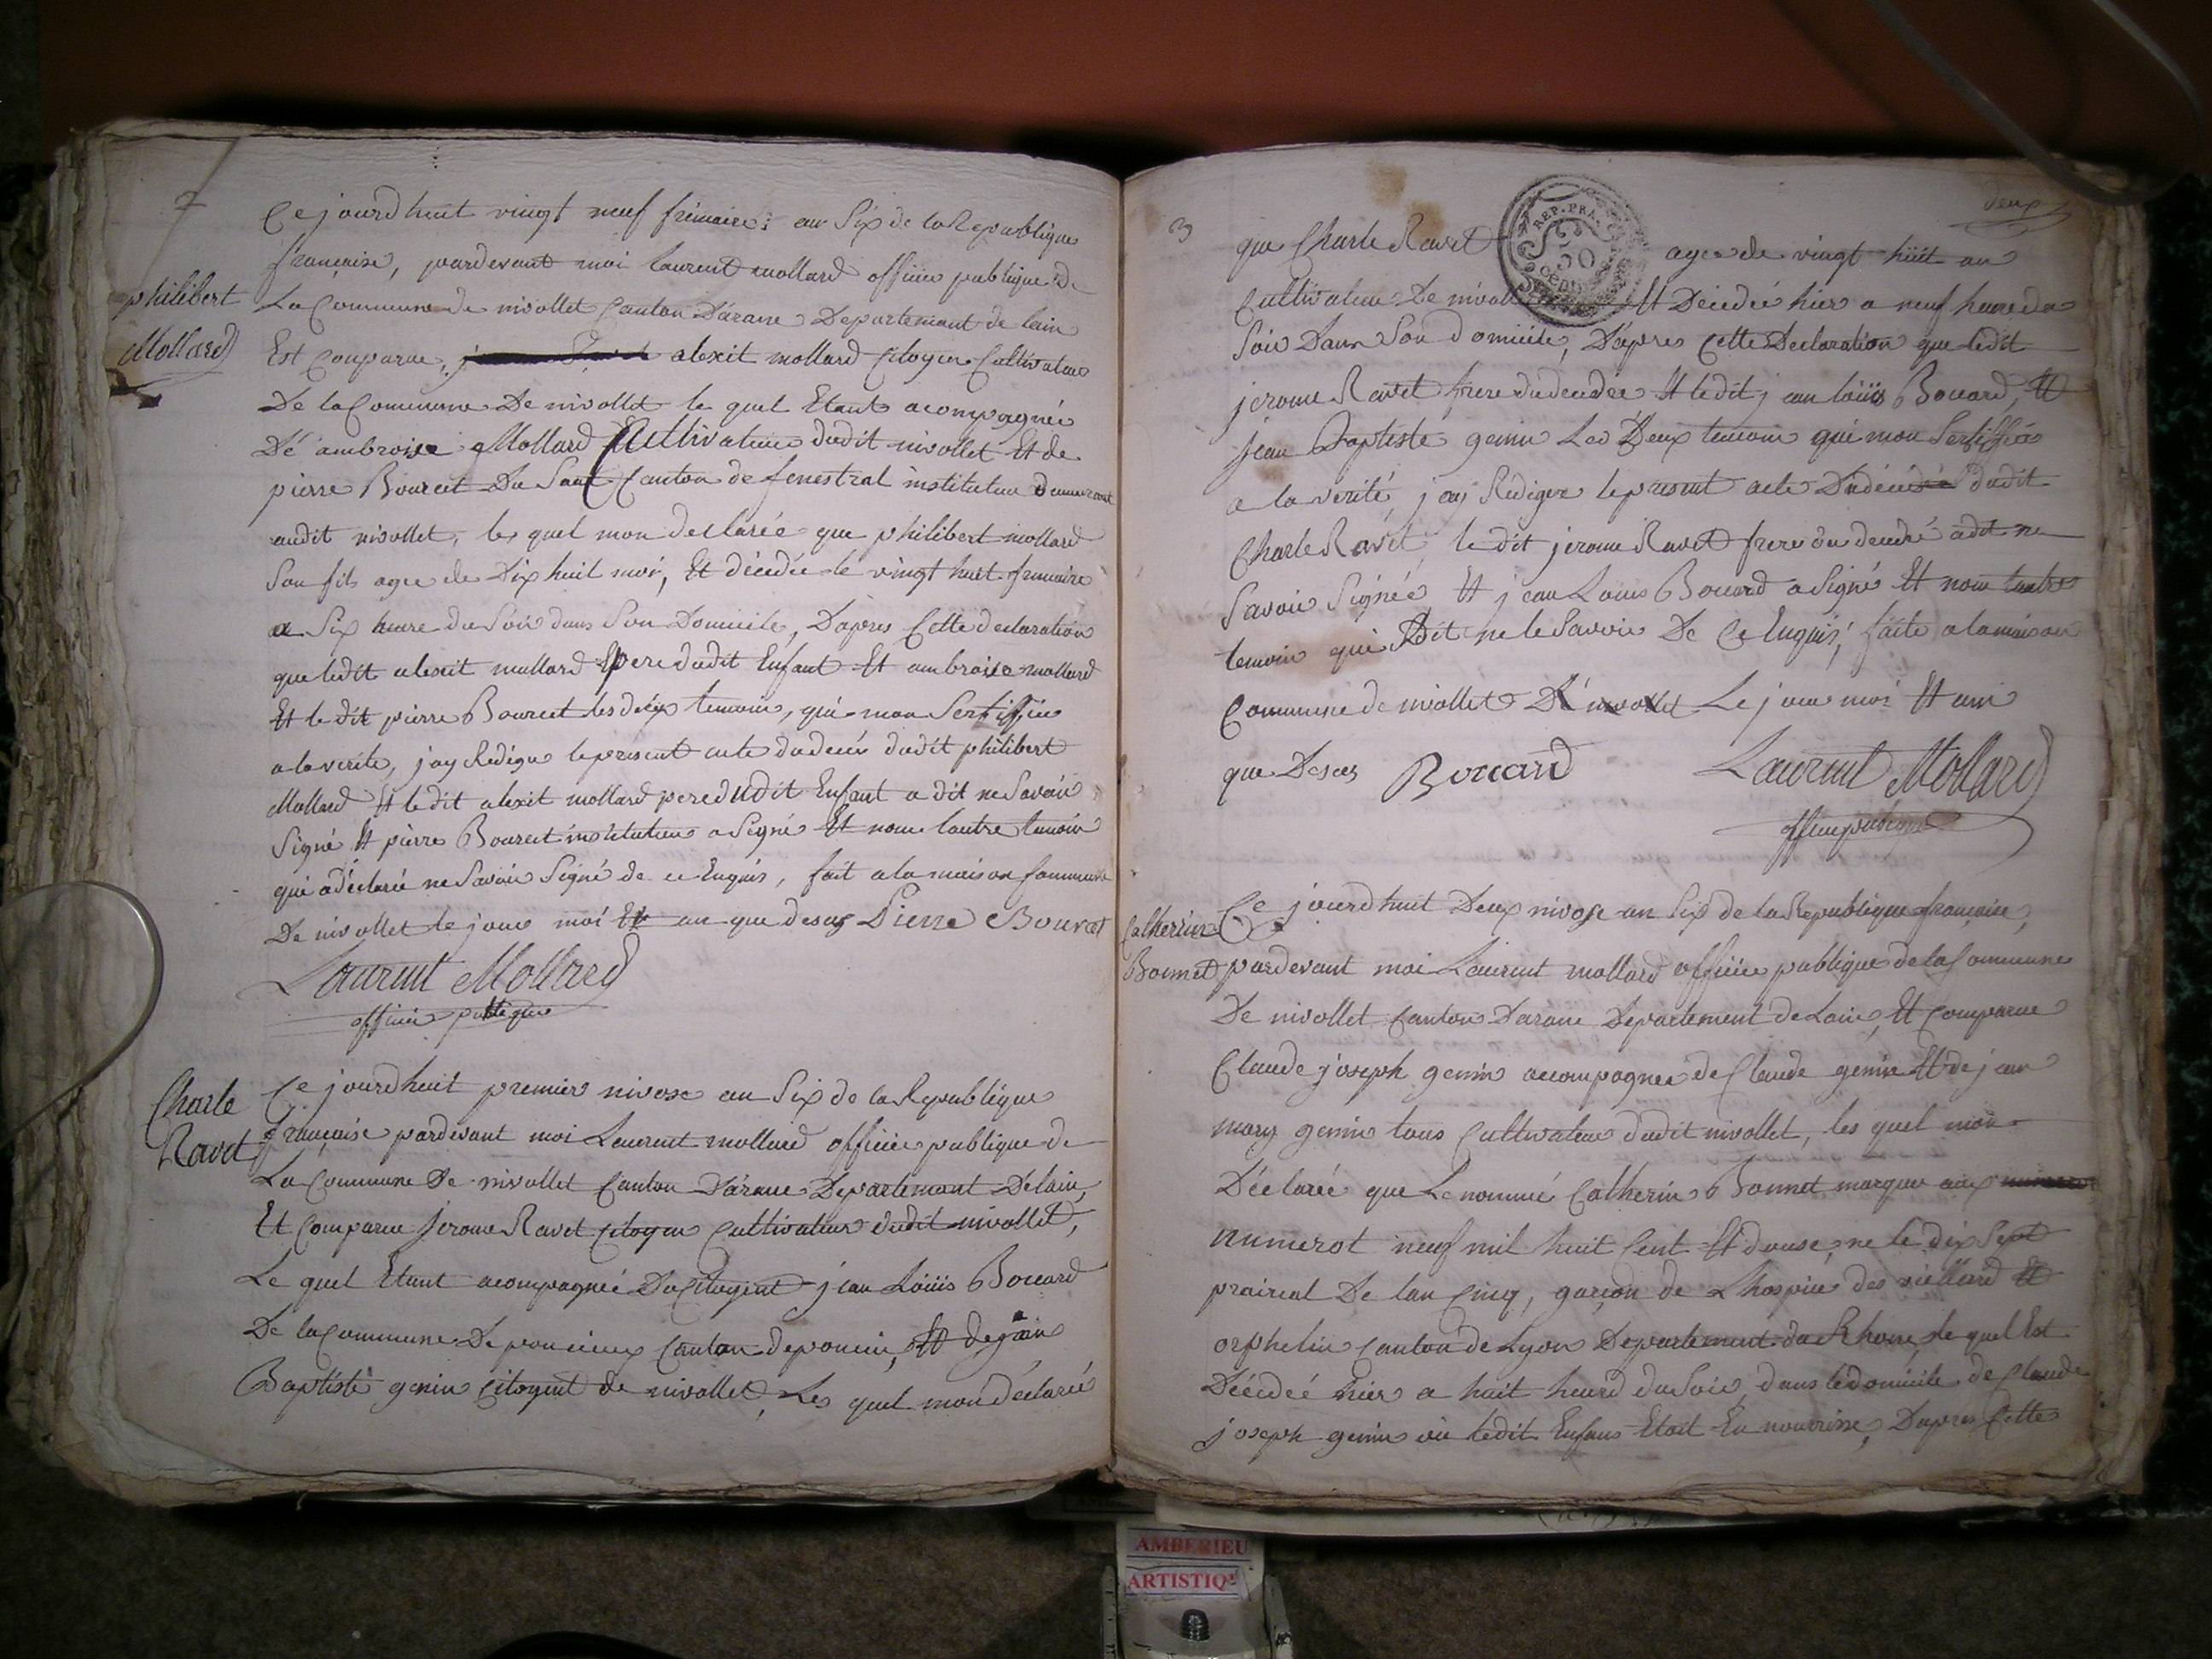 2
Ce jourdhuit vingt neuf frimaire an Six de la Republique
française, pardevant moi laurent mollard officier publique de
philibert
Mollard
La Commune de nivollet Canton D'arane Departemant de lain
Est Comparue, alexit mollard Citoyen Cultivateur
De la Commune De nivollet le quel Etant acompagnée
Dé ambroise Mollard Cultivateur dudit nivollet Et de
pierre Bourcet Du Canton de fenestral instituteur demeurant
audit nivollet, les quel mon declarée que philibert mollard
Son fils agee de Dix huit moi, Et décédée le vingt huit frimaire
a Six heure du Soir dans Son Domicile, D'apres Cette declaration
que ledit alexit mollard pere dudit Enfant Et ambroise mollard
Et le dit pierre Bourcet les deux temoin, qui mon Sertiffiée
a la verité, j'ay Rediger le present acte du decés dudit philibert
Mollard Et le dit alexit mollard pere dudit Enfant a dit ne Savoir
Signé Et pierre Bourcet instituteur a Signé Et nom lautre temoin
qui a déclarée ne Savoir Signé de ce Enquis, fait a la maison Commune
De nivollet le jour moi Et an que desus Pierre Bourcet
Laurent Mollard
officier publique
Charle
Ravet
Ce jourdhuit premier nivose an Six de la Republique
française pardevant moi Laurent mollard officier publique de
La Commune De nivollet Canton D'arane Departemant De lain,
Et Comparue jerome Ravet Citoyen Cultivateur dudit nivollet,
Le quel Etant acompagnée Du Citoyent jean Loüis Bouard
De la Commune De poncieux Canton de poncin, Et de jean
Baptiste genin Citoyent de nivollet, Les quel mon déclarée
3
deux
REP. FRA.
50
cent
que Charle Ravet agee de vingt hüit an
Cultivateur De nivollet Et Décedée hier a neuf heure du
Soir Dans Son domicile, D'apres Cette Declaration que ledit
jerome Ravet frere du decedée Et le dit jean loüis Bouard, Et
jean Baptiste genin Les Deux temoin qui mon Sertiffiée
a la verité, j'ay Rediger le present acte Du décédé dudit
Charle Ravet, le dit jerome Ravet frere du decedé a dit ne
Savoir Signée Et jean Louis Bouard a Signé Et nom lautre
temoin qui Dit ne le Savoir De Ce Enquis, faite a la maison
Commune de nivollet De nivollet Le jour moi Et an
que Desus Bouard Laurent Mollard
officier publique
Catherine
Bonnet
Ce jourdhuit Deux nivose an Six de la Republique française,
pardevant moi Laurent mollard officier publique de la Commune
De nivollet Canton D'arane Departement De Lain, Et Comparue
Claude joseph genin acompagnée de Claude genin Et de jean
mary genin tous Cultivateur dudit nivollet, les quel mon
Déclarée que Le nommé Catherin Bonnet marquee aux
numerot neuf mil huit Cent Et douse, ne le dix Sept
prairial De lan Cinq, garçon de Lhospice des viellard Et
orphelin Canton de Lyon Departement du Rhone, le quel Est
Décedeé hier a huit heurd du Soir, dans le domicile de Claude
joseph genin où ledit Enfans Etoit En nourrisse, D'apres Cette
AMBERIEU
ARTISTIQ